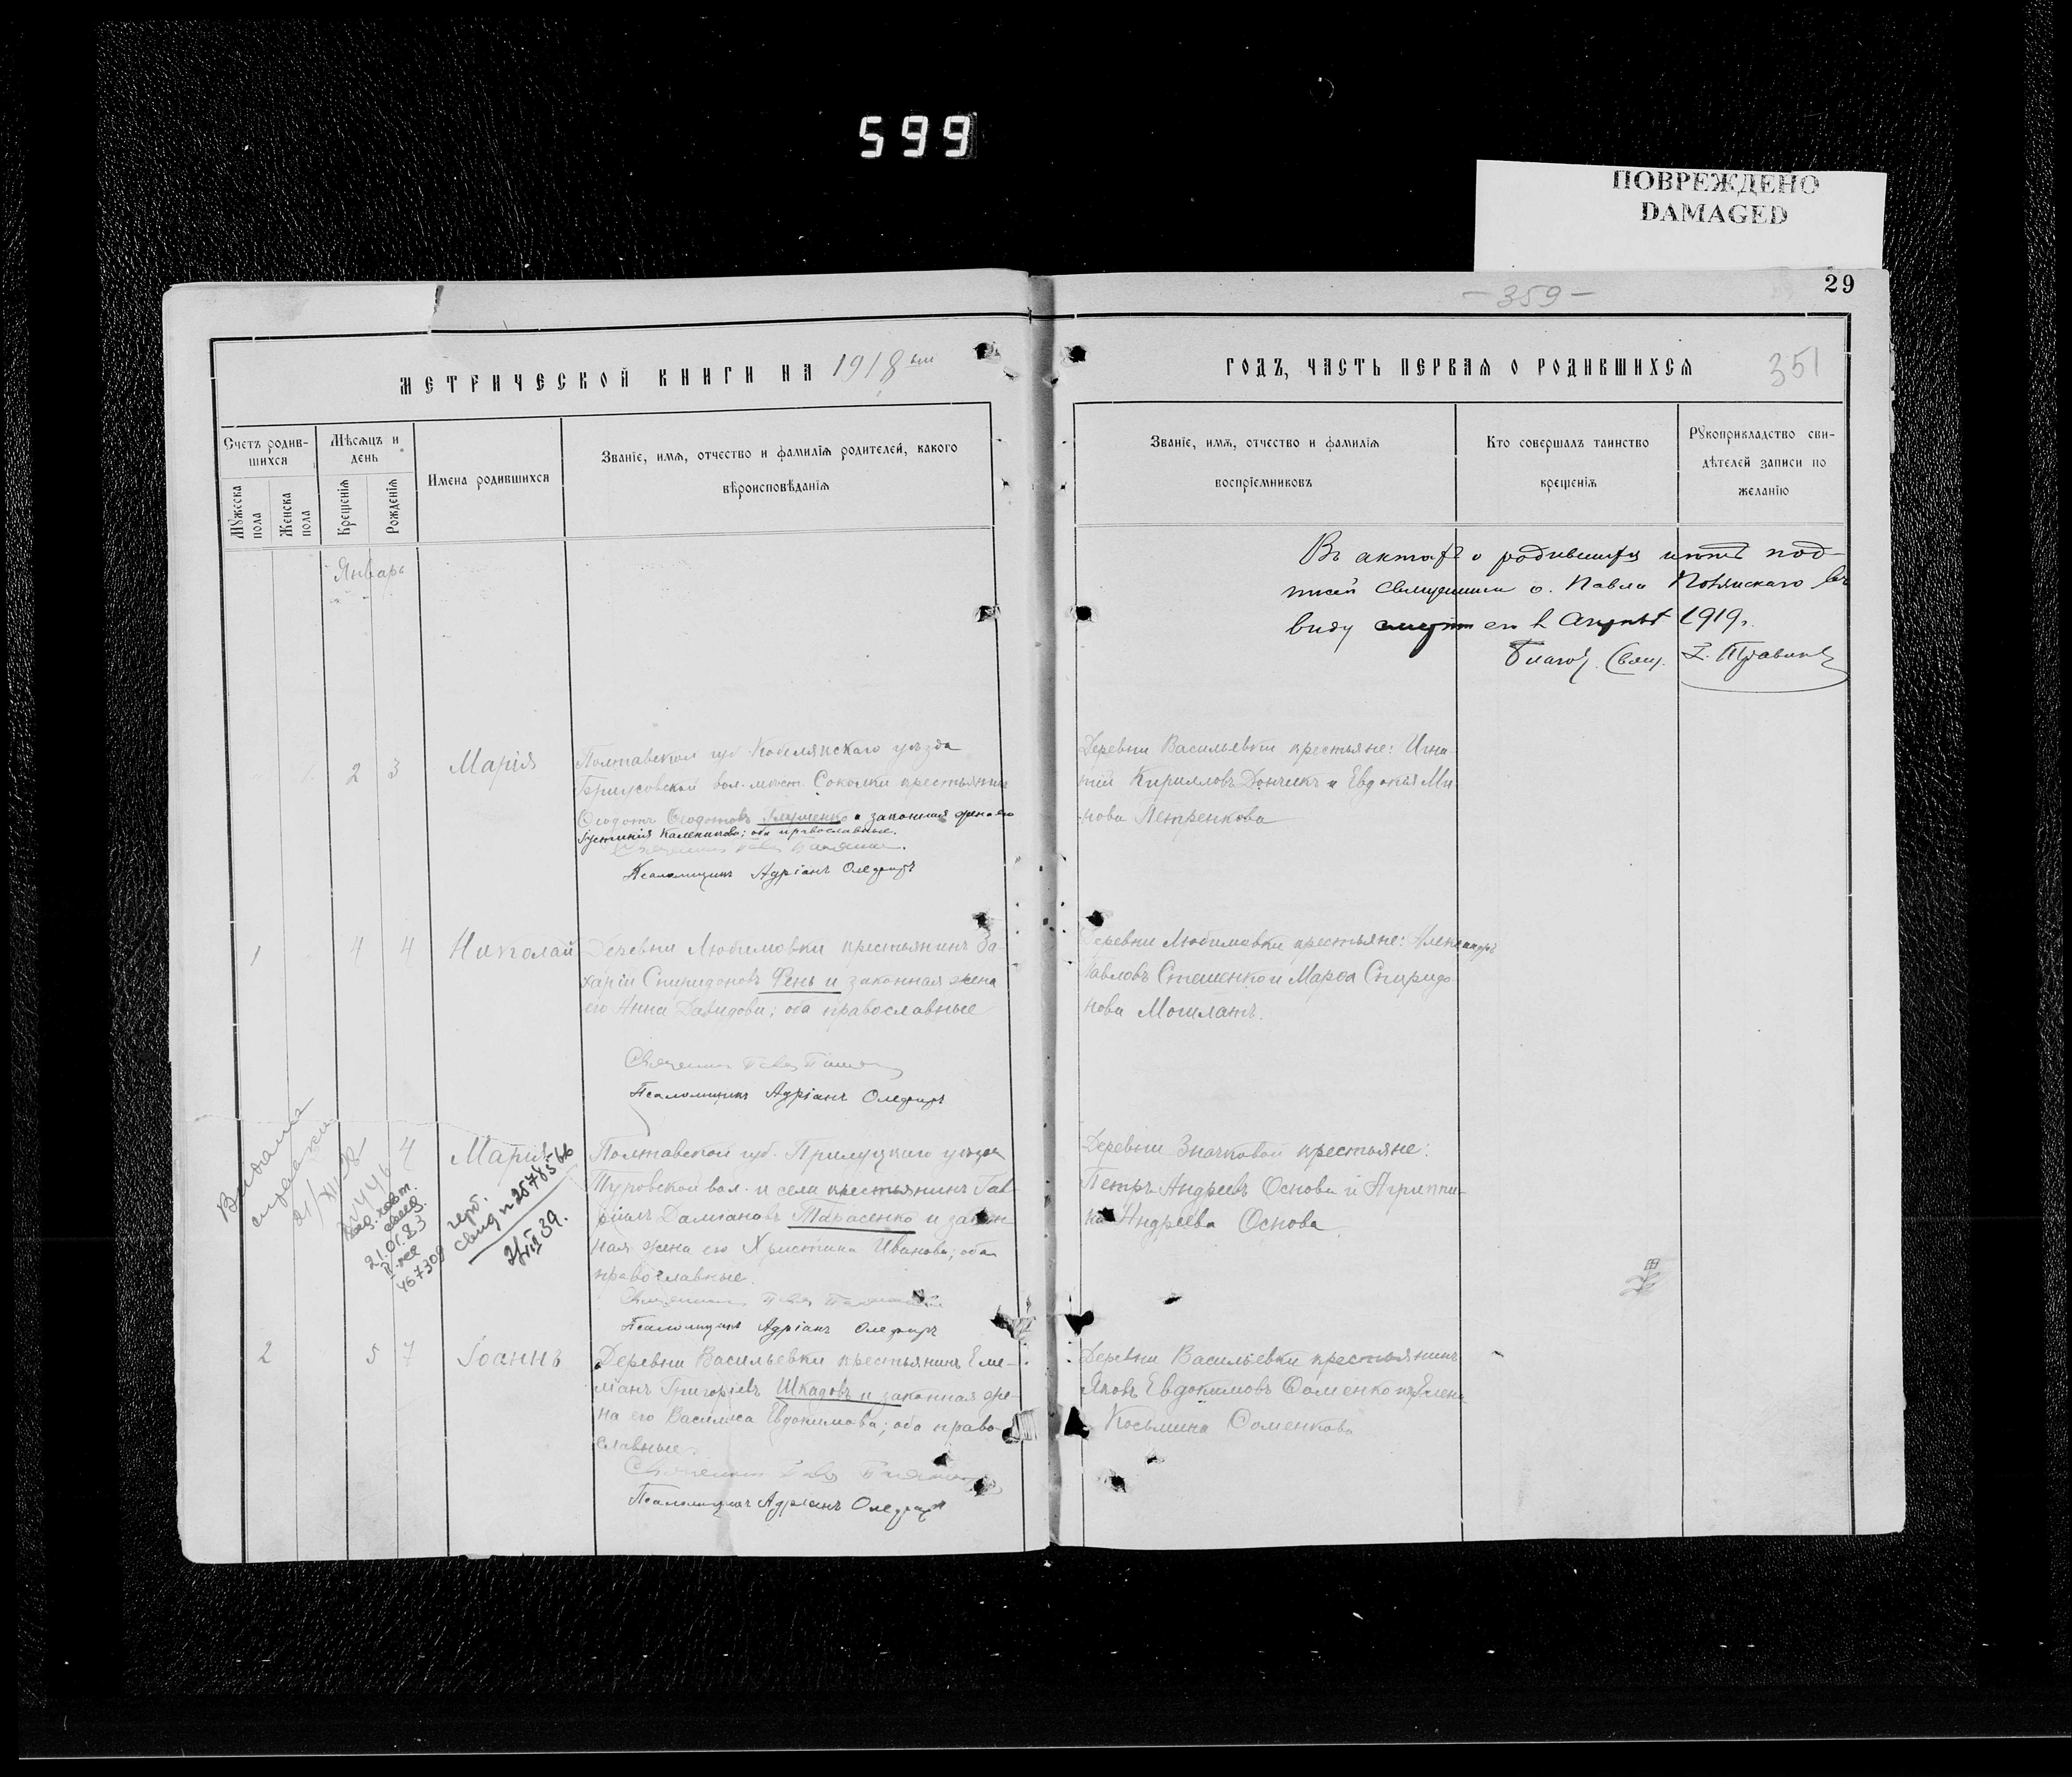 599
ПОВРЕЖДЕНО
DAMAGED
29
- 359 -
351
МЕТРИЧЕСКОЙ КНИГИ НА 1918 ый
ГОДЪ, ЧАСТЬ ПЕРВАЯ О РОДИВШИХСЯ
Счетъ родив-
шихся
Мужеска
пола
Женска
пола
Мѣсяцъ и
день
Крещенія
Рожденія
Имена родившихся
Званіе, имя, отчество и фамилія родителей, какого
вѣроисповѣданія
Званіе, имя, отчество и фамилія
воспріемниковъ
Кто совершалъ таинство
крещенія
Рукоприкладство сви-
дѣтелей записи по
желанію
Январь
Въ актахъ о родившихся нѣтъ под-
писей священника о. Павла въ
виду смерти его въ 1919 г.
Благоч. Свящ.
1 2 3 Марія
Полтавской губ. Кобелякскаго уѣзда
вол. мѣст. Соколки крестьянинъ
Ѳеодотъ Ѳеодотовъ и законная жена его
Іустинія ; оба православные.
Псаломщикъ Адріанъ Олефиръ
Деревни Васильевки крестьяне: Игна-
тій Кирилловъ Дончикъ и Евдокія Ми-
нова Петренкова
1 4 4 Николай
Деревни Любимовки крестьянинъ За-
харій Спиридоновъ Фень и законная жена
его Анна Давидова; оба православные
Псаломщикъ Адріанъ Олефиръ
Деревни Любимовки крестьяне: Александръ
Павловъ Стешенко и Марѳа Спиридо-
нова
Выдана
справка
4 Марія
21.01.83
467309
герб.
свид №
39.
Полтавской губ. Прилуцкаго уѣзда
Туровской вол. и села крестьянинъ Гав-
ріилъ Даміановъ Тарасенко и закон-
ная жена его Христина Иванова; оба
православные.
Псаломщикъ Адріанъ Олефиръ
Деревни Значковой крестьяне:
Петръ Андреевъ Основа и Агриппи-
на Андреева Основа.
2 5 7 Іоаннъ
Деревни Васильевки крестьянинъ Еме-
ліанъ Григоріевъ Шкадовъ и законная же-
на его Василиса Евдокимова; оба право-
славные.
Псаломщикъ Адріанъ Олефиръ
Деревни Васильевки крестьянинъ
Яковъ Евдокимовъ Ѳоменко и Елена
Косьмина Ѳоменкова